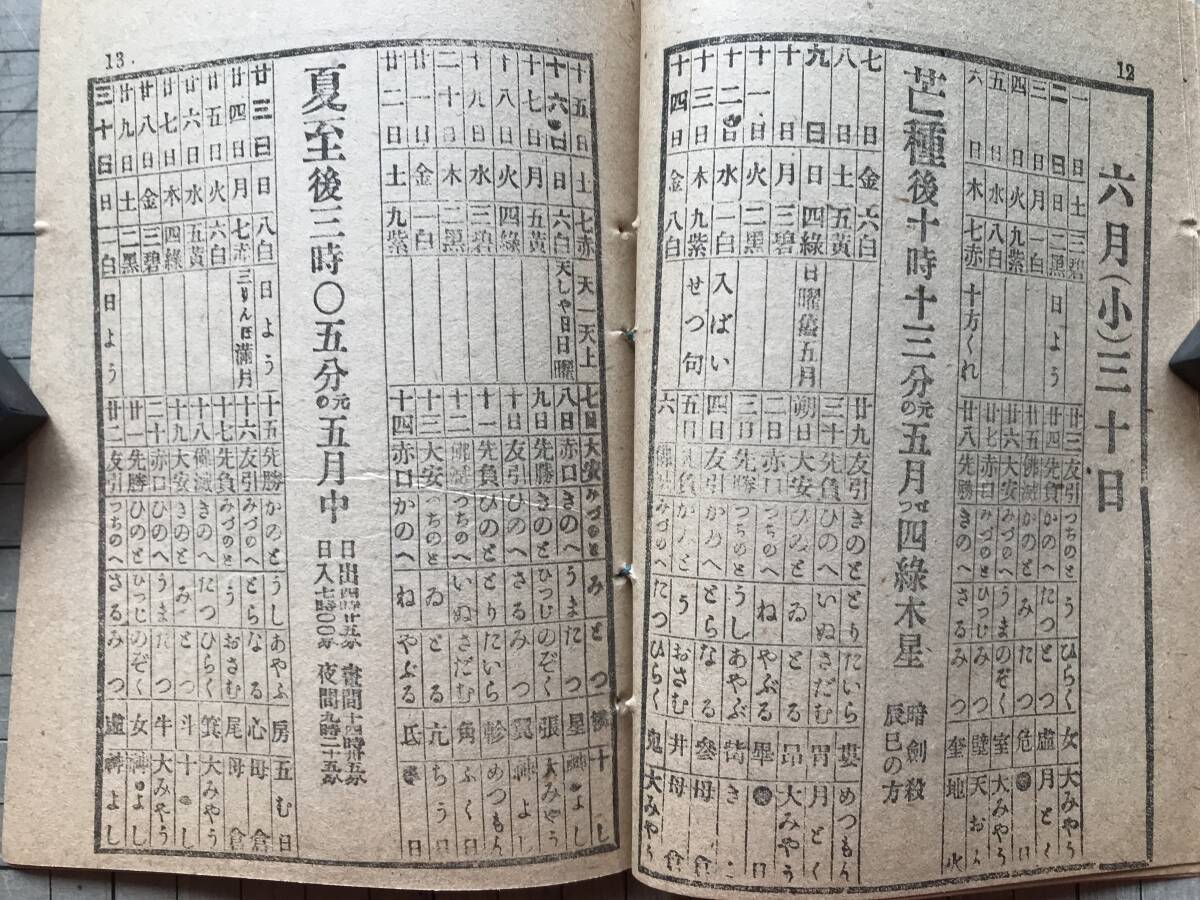 12
六月(小)三十日
一日 土 三碧 廿三 友引 つちのと う ひらく 女 大みやう
二日 日 二黑 日よう 廿四 先負 かのへ たつ とつ 虛 月とく
三日 月 一白 廿五 佛滅 かのと み たつ 危 日
四日 火 九紫 廿六 大安 みづのへ うま のぞく 室 大みやう
五日 水 八白 廿七 赤口 みづのと ひつじ みつ 壁 天おん
六日 木 七赤 十方くれ 廿八 先勝 きのへ さる みつ 奎 地火
芒種後十時十三分元の五月せつ四綠木星 暗劍殺 辰巳の方
七日 金 六白 廿九 友引 きのと とり たいら 婁 めつもん
八日 土 五黃 三十 先負 ひのへ いぬ さだむ 胃 月とく
九日 日 四綠 日曜舊五月 朔日 大安 ひのと ゐ とる 昴 大みやう
十日 月 三碧 二日 赤口 つちのへ ね やぶる 畢 日
十一日 火 二黑 三日 先勝 つちのと うし あやぶ 觜
十二日 水 一白 入ばい 四日 友引 かのへ とら なる 參 母倉
十三日 木 九紫 せつ句 五日 先負 かのと う おさむ 井 母倉
十四日 金 八白 六 佛滅 みづのへ たつ ひらく 鬼 大みやう
13
十五日 土 七赤 天一天上 七日 大安 みづのと み とつ 十し
十六日 日 六白 天しや日日曜 八日 赤口 きのへ うま たつ 星 神よし
十七日 月 五黃 九日 先勝 きのと ひつじ のぞく 張 大みやう
十八日 火 四綠 十日 友引 ひのへ さる みつ 翼 神よし
十九日 水 三碧 十一 先負 ひのと とり たいら 軫 めつもん
二十日 木 二黑 十二 佛滅 つちのへ いぬ さだむ 角 ふく日
廿一日 金 一白 十三 大安 つちのと ゐ とる 亢 ちう日
廿二日 土 九紫 十四 赤口 かのへ ね やぶる 氐 日
夏至後三時〇五分元の五月中 日出四時廿五分 日入七時〇〇分 晝間十四時卅五分 夜間九時二十五分
廿三日 日 八白 日よう 十五 先勝 かのと うし あやふ 房 五む日
廿四日 月 七赤 三りんぼ滿月 十六 友引 みづのへ とら なる 心 母倉
廿五日 火 六白 十七 先負 みづのと う おさむ 尾 母倉
廿六日 水 五黃 十八 佛滅 きのへ たつ ひらく 箕 大みやう
廿七日 木 四綠 十九 大安 きのと み とつ 斗 十し
廿八日 金 三碧 二十 赤口 ひのへ うま たつ 牛 大みやう
廿九日 土 二黑 廿一 先勝 ひのと ひつじ のぞく 女 神よし
三十日 日 一白 日よう 廿二 友引 つちのへ さる みつ 虛 神よし